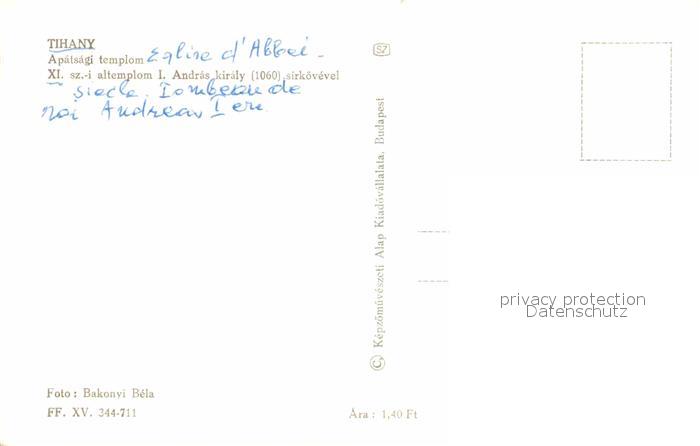 TIHANY
Apátsági templom Eglise d'Abbei -
XI. sz.-i altemplom I. András király (1060) sírkővével
siecle. Tombeau de
roi Andreas I er.
SZ
© Képzőművészeti Alap Kiadóvállalata, Budapest
privacy protection
Datenschutz
Foto : Bakonyi Béla
FF. XV. 344-711
Ára : 1,40 Ft